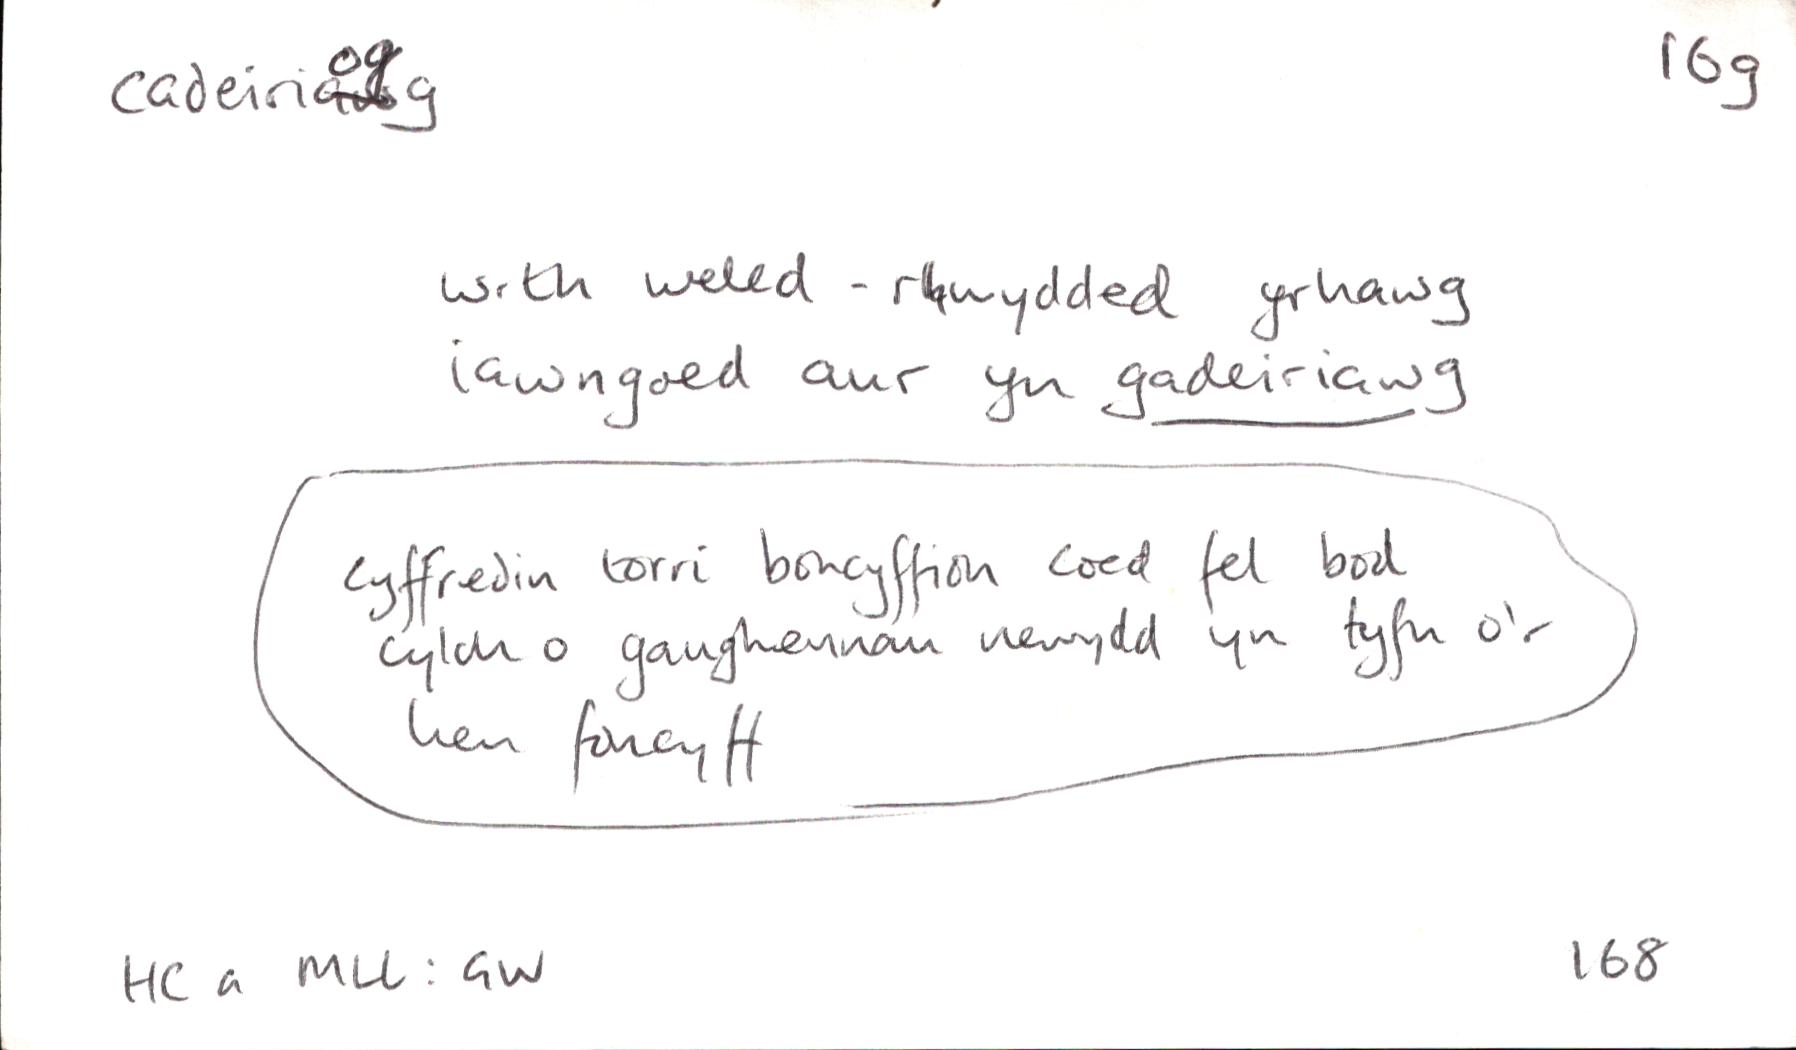 cadeiriog 16g
wrth weled - rhwydded yrhawg
iawngoed aur yn gadeiriawg
cyffredin torri boncyffion coed fel bod
cylch o ganghennau newydd yn tyfu o'r
hen foncyff
HC a MLl: GW 168